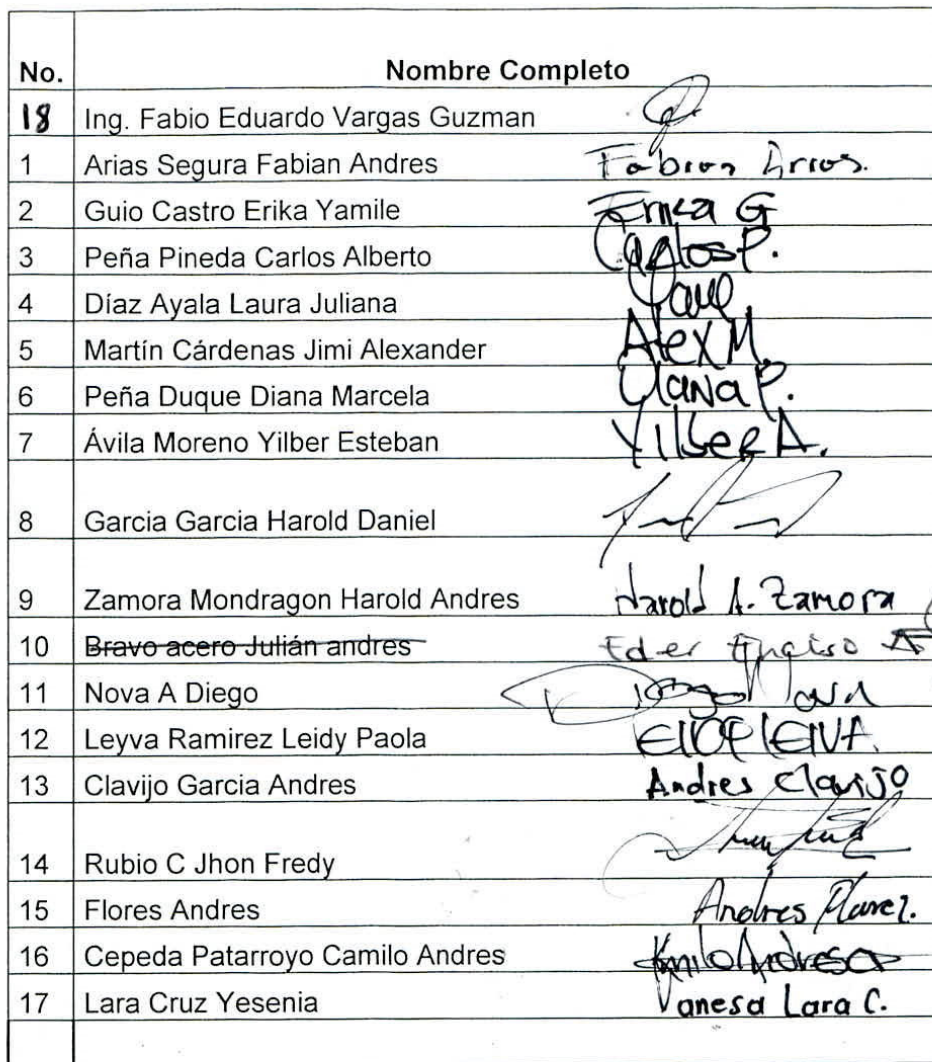 No. Nombre Completo
18 Ing. Fabio Eduardo Vargas Guzman
1 Arias Segura Fabian Andres Fabian Arias.
2 Guio Castro Erika Yamile Erika G
3 Peña Pineda Carlos Alberto Carlos P.
4 Díaz Ayala Laura Juliana
5 Martín Cárdenas Jimi Alexander Alex M.
6 Peña Duque Diana Marcela Diana P.
7 Ávila Moreno Yilber Esteban Yilber A.
8 Garcia Garcia Harold Daniel
9 Zamora Mondragon Harold Andres Harold A. Zamora
10 Bravo acero Julián andres Eder Enciso
11 Nova A Diego Diego Nova
12 Leyva Ramirez Leidy Paola
13 Clavijo Garcia Andres Andres Clavijo
14 Rubio C Jhon Fredy
15 Flores Andres Andres
16 Cepeda Patarroyo Camilo Andres
17 Lara Cruz Yesenia Vanesa Lara C.